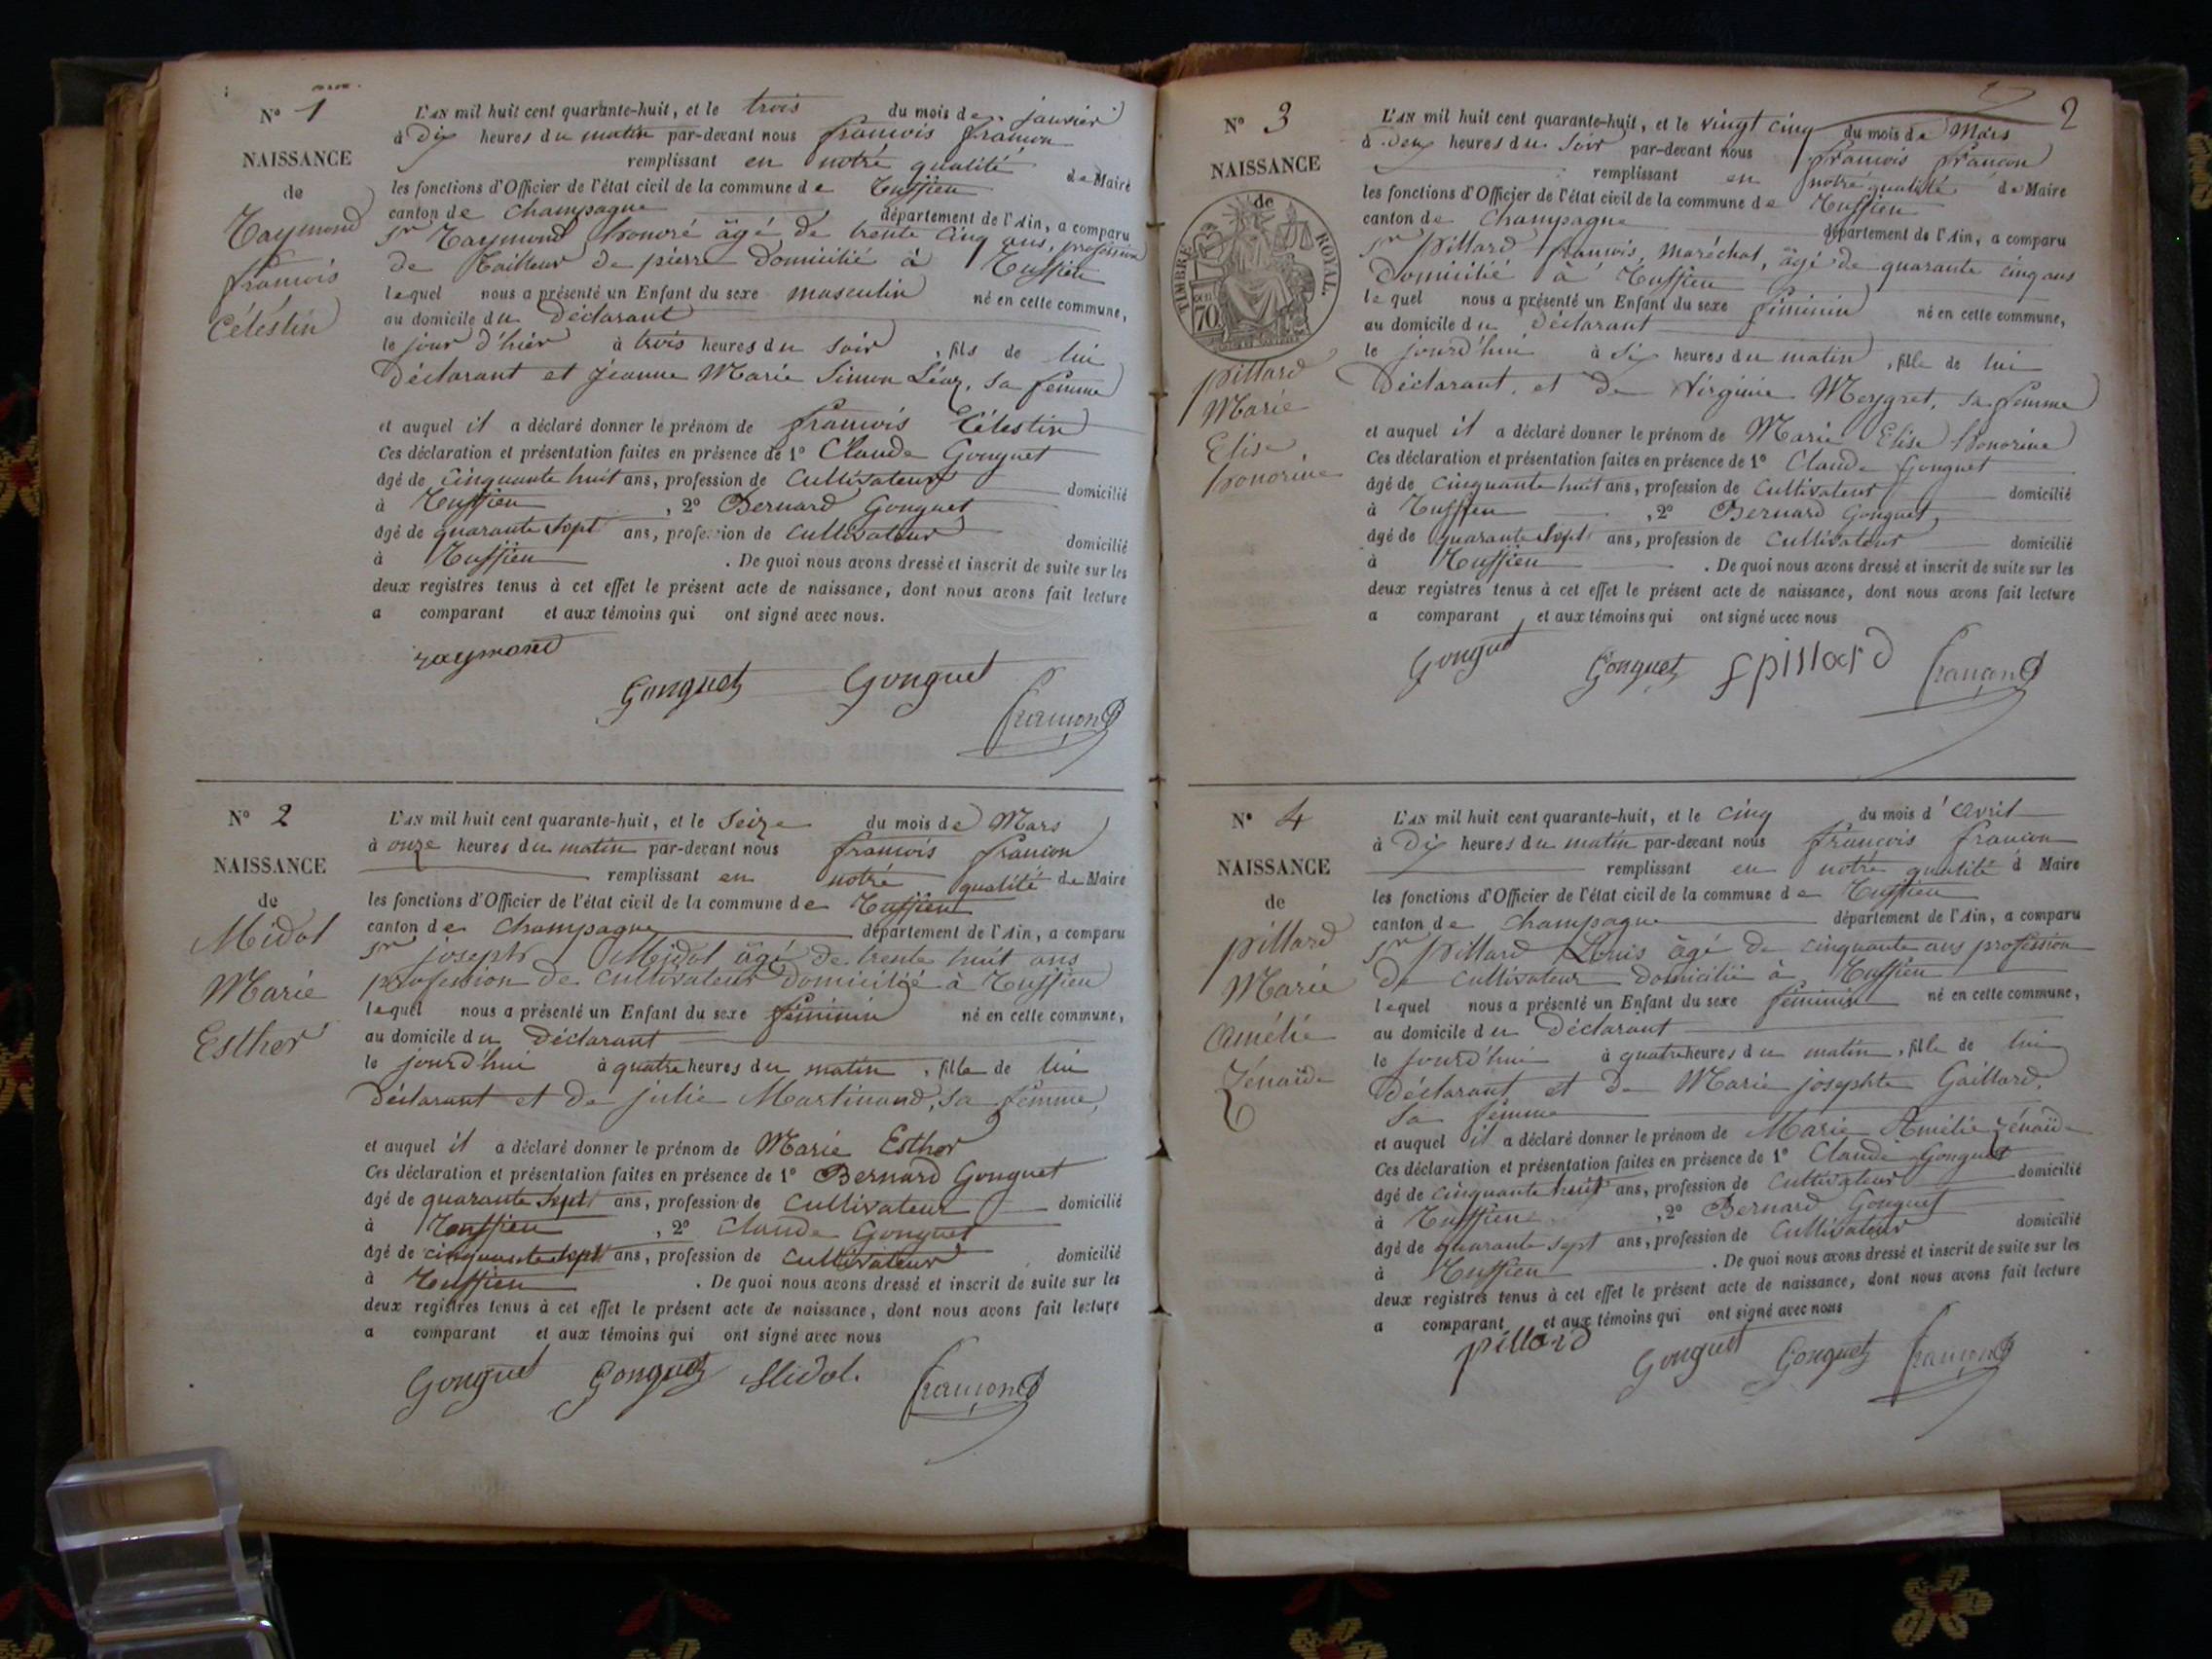 N° 1
NAISSANCE
de
Raymond
françois
Célestin
L'AN mil huit cent quarante-huit, et le trois du mois de janvier
à Dix heures du matin par-devant nous françois françon
remplissant en notre qualité de Maire
les fonctions d'Officier de l'état civil de la commune de Ruffieu
canton de Champagne département de l'Ain, a comparu
Sr Raymond honoré âgé de trente cinq ans, profession
de Tailleur de pierre Domicilié à Ruffieu
lequel nous a présenté un Enfant du sexe masculin né en cette commune,
au domicile du Déclarant
le jour d'hier à trois heures du soir, fils de lui
Déclarant et jeanne Marie Simon Léaz, sa femme
et auquel il a déclaré donner le prénom de françois Célestin
Ces déclaration et présentation faites en présence de 1° Claude Gonguet
âgé de cinquante huit ans, profession de Cultivateur domicilié
à Ruffieu, 2° Bernard Gonguet
âgé de quarante sept ans, profession de cultivateur domicilié
à Ruffieu. De quoi nous avons dressé et inscrit de suite sur les
deux registres tenus à cet effet le présent acte de naissance, dont nous avons fait lecture
a comparant et aux témoins qui ont signé avec nous.
raymond
Gonguet Gonguet
françon
N° 2
NAISSANCE
de
Midol
Marie
Esther
L'AN mil huit cent quarante-huit, et le Seize du mois de Mars
à onze heures du matin par-devant nous françois françon
remplissant en notre qualité de Maire
les fonctions d'Officier de l'état civil de la commune de Ruffieu
canton de Champagne département de l'Ain, a comparu
Sr joseph Midol âgé de trente huit ans
profession de cultivateur domicilié à Ruffieu
lequel nous a présenté un Enfant du sexe féminin né en cette commune,
au domicile du Déclarant
le jourd'hui à quatre heures du matin, fille de lui
Déclarant et de julie Martinand, sa femme,
et auquel il a déclaré donner le prénom de Marie Esther
Ces déclaration et présentation faites en présence de 1° Bernard Gonguet
âgé de quarante sept ans, profession de cultivateur domicilié
à Ruffieu, 2° Claude Gonguet
âgé de cinquante sept ans, profession de cultivateur domicilié
à Ruffieu. De quoi nous avons dressé et inscrit de suite sur les
deux registres tenus à cet effet le présent acte de naissance, dont nous avons fait lecture
a comparant et aux témoins qui ont signé avec nous
Gonguet Gonguet Midol. françon
2
N° 3
NAISSANCE
de
TIMBRE ROYAL.
70
pillard
Marie
Elise
honorine
L'AN mil huit cent quarante-huit, et le vingt cinq du mois de Mars
à Deux heures du soir par-devant nous françois françon
remplissant en notre qualité de Maire
les fonctions d'Officier de l'état civil de la commune de Ruffieu
canton de Champagne département de l'Ain, a comparu
Sr pillard françois, maréchal, âgé de quarante cinq ans
Domicilié à Ruffieu
lequel nous a présenté un Enfant du sexe féminin né en cette commune,
au domicile du Déclarant
le jourd'hui à Six heures du matin, fille de lui
Déclarant, et de Virginie Meygret, sa femme
et auquel il a déclaré donner le prénom de Marie Elise honorine
Ces déclaration et présentation faites en présence de 1° Claude Gonguet
âgé de cinquante huit ans, profession de cultivateur domicilié
à Ruffieu, 2° Bernard Gonguet,
âgé de quarante sept ans, profession de cultivateur domicilié
à Ruffieu. De quoi nous avons dressé et inscrit de suite sur les
deux registres tenus à cet effet le présent acte de naissance, dont nous avons fait lecture
a comparant et aux témoins qui ont signé avec nous
Gonguet Gonguet f pillard françon
N° 4
NAISSANCE
de
pillard
Marie
Amélie
Zénaïde
L'AN mil huit cent quarante-huit, et le cinq du mois d'avril
à Dix heures du matin par-devant nous françois françon
remplissant en notre qualité d Maire
les fonctions d'Officier de l'état civil de la commune de Ruffieu
canton de Champagne département de l'Ain, a comparu
Sr pillard Louis âgé de cinquante ans profession
de cultivateur domicilié à Ruffieu
lequel nous a présenté un Enfant du sexe féminin né en cette commune,
au domicile du Déclarant
le jourd'hui à quatre heures du matin, fille de lui
Déclarant et de Marie josephte Gaillard,
sa femme
et auquel il a déclaré donner le prénom de Marie Amélie Zénaïde
Ces déclaration et présentation faites en présence de 1° Claude Gonguet
âgé de cinquante huit ans, profession de cultivateur domicilié
à Ruffieu, 2° Bernard Gonguet
âgé de quarante sept ans, profession de cultivateur domicilié
à Ruffieu. De quoi nous avons dressé et inscrit de suite sur les
deux registres tenus à cet effet le présent acte de naissance, dont nous avons fait lecture
a comparant et aux témoins qui ont signé avec nous
pillard Gonguet Gonguet françon